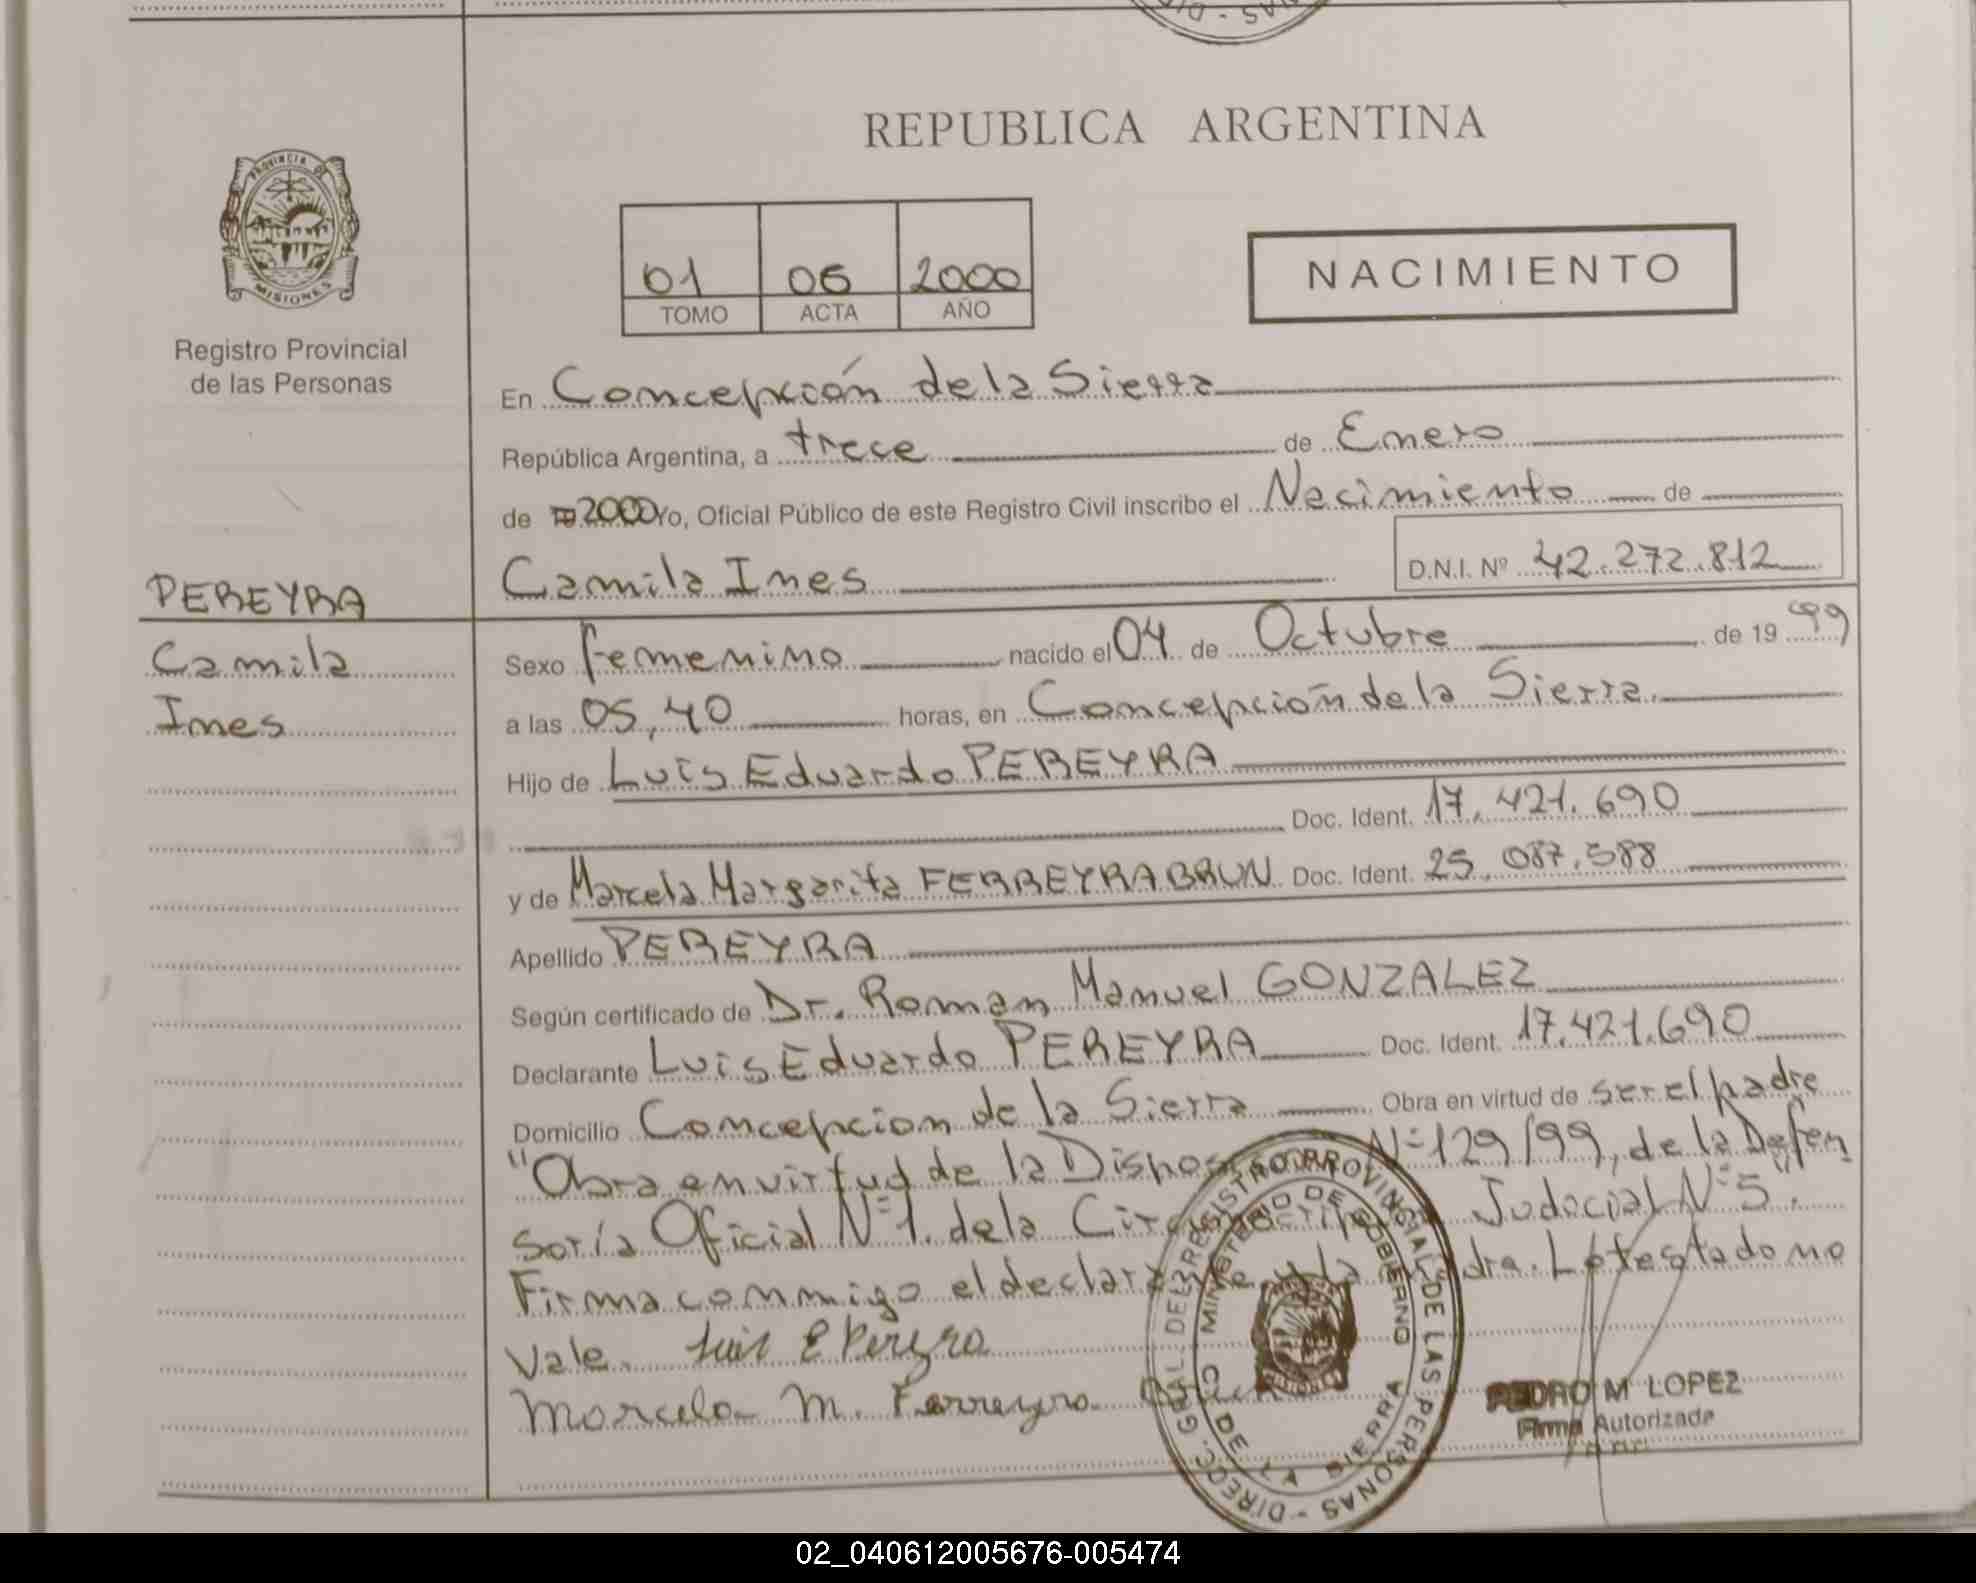 REPUBLICA ARGENTINA
PROVINCIA DE
MISIONES
Registro Provincial
de las Personas
01 06 2000
TOMO ACTA AÑO
NACIMIENTO
En Concepción de la Sierra
República Argentina, a trece de Enero
de 2000 Yo, Oficial Público de este Registro Civil inscribo el Nacimiento de
Camila Ines D.N.I. Nº 42.272.812
PEREYRA
Camila
Ines
Sexo femenino nacido el 04 de Octubre de 19 99
a las 05,40 horas, en Concepción de la Sierra.
Hijo de Luis Eduardo PEREYRA
Doc. Ident. 17.421.690
y de Marcela Margarita FERREYRA BRUN Doc. Ident. 25.087.588
Apellido PEREYRA
Según certificado de Dr. Roman Manuel GONZALEZ
Declarante Luis Eduardo PEREYRA Doc. Ident. 17.421.690
Domicilio Concepcion de la Sierra Obra en virtud de ser el padre
"Obra en virtud de la Nº 129/99, de la Defen
soría Oficial Nº 1. de la Judicial Nº 5".
Firma conmigo el declarante y la Lo testado no
Vale. Luis E Pereyra
Marcela M. Ferreyra
DIRECC. GRAL. DEL REGISTRO PROVINCIAL DE LAS PERSONAS -
MINISTERIO DE GOBIERNO
C. DE LA SIERRA
PEDRO M LOPEZ
Firma Autorizada
02_040612005676-005474